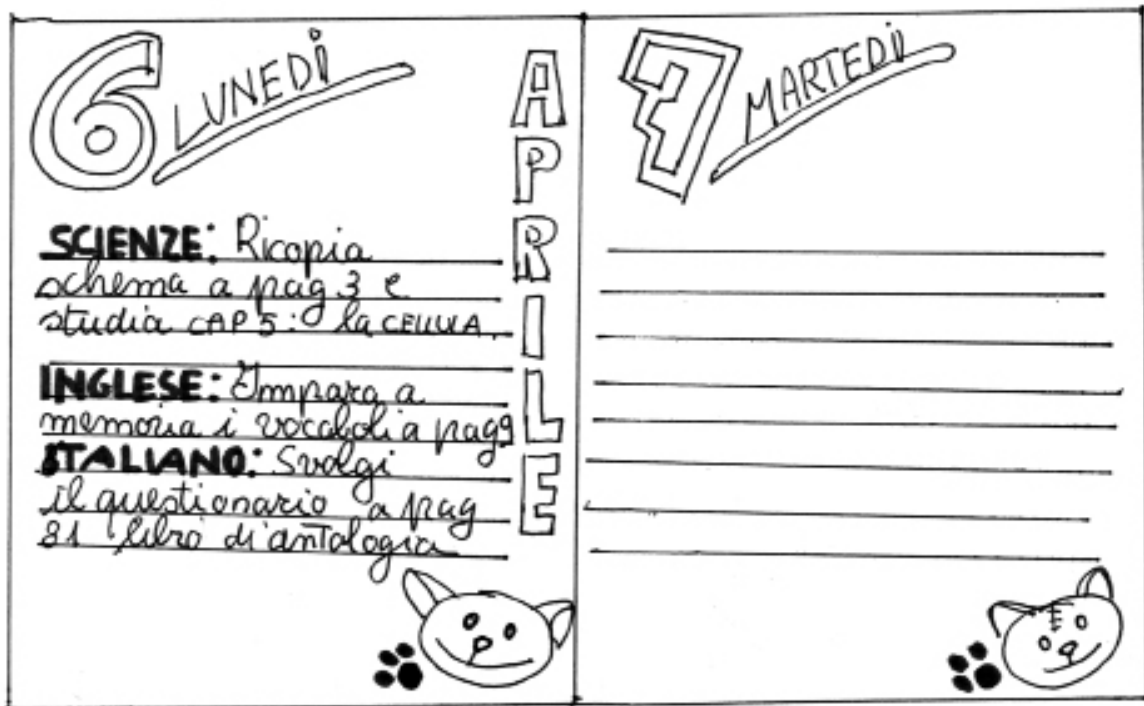 6 LUNEDÌ
APRILE
SCIENZE: Ricopia
schema a pag 3 e
studia CAP 5: la CELLULA.
INGLESE: Impara a
memoria i vocaboli a pag 9
ITALIANO: Svolgi
il questionario a pag
81 libro di antologia
7 MARTEDÌ